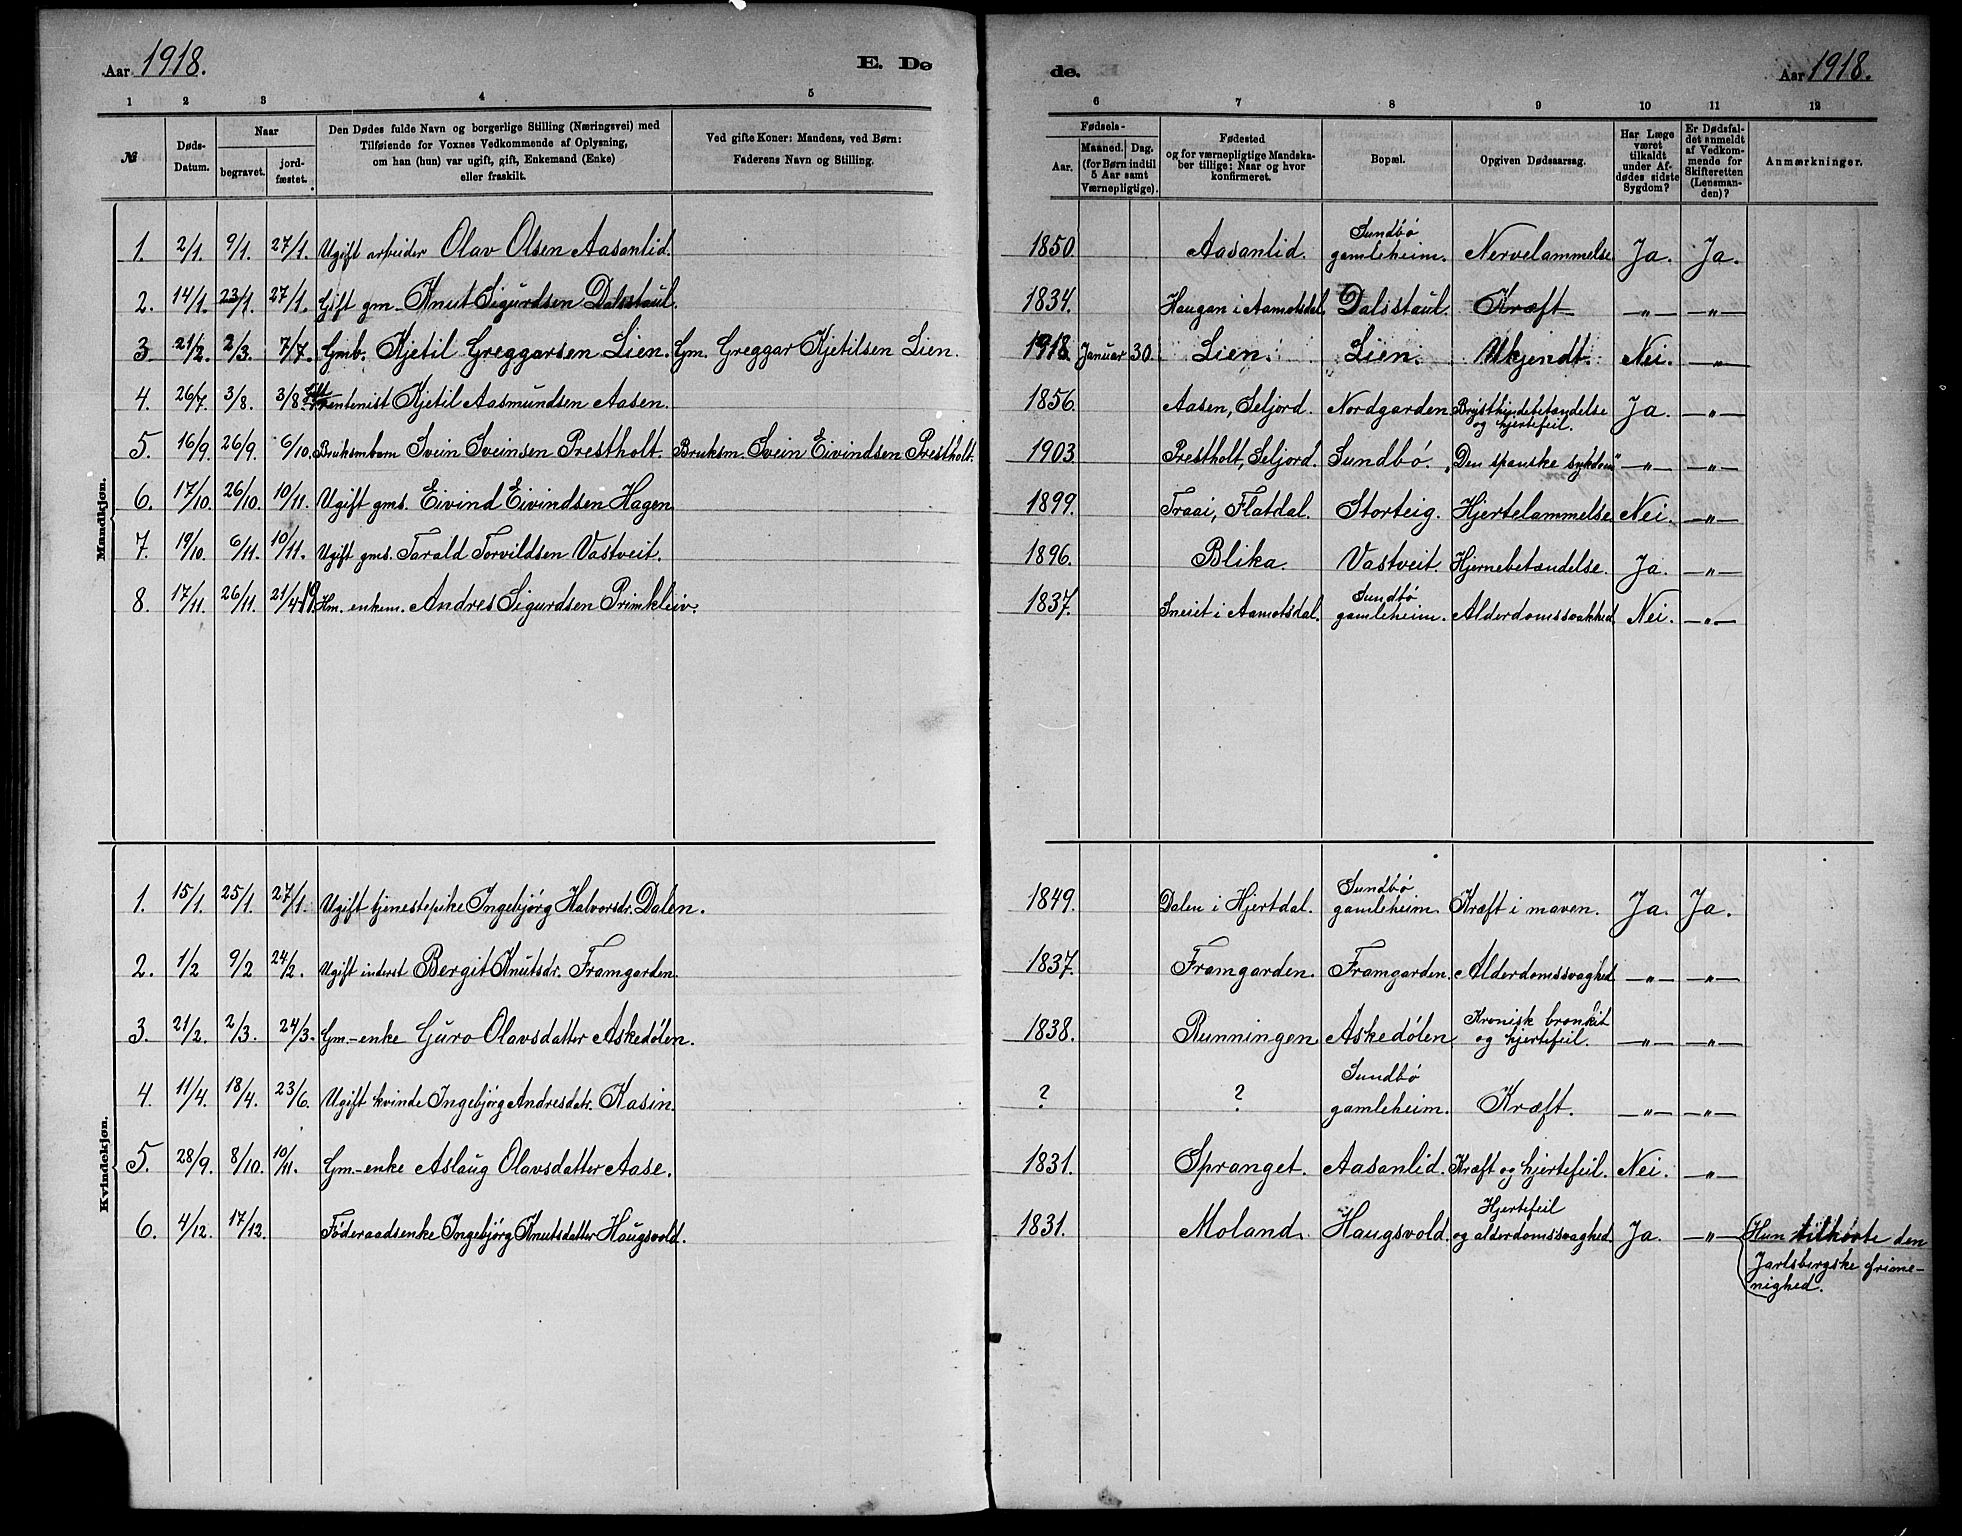 Aar 1918. E. De
de. Aar 1918.
1 2 3 4 5
6 7 8 9 10 11 12
№ Døds-Datum. Naar begravet. jord-fæstet.
Den Dødes fulde Navn og borgerlige Stilling (Næringsvei) med
Tilføiende for Voxnes Vedkommende af Oplysning,
om han (hun) var ugift, gift, Enkemand (Enke)
eller fraskilt.
Ved gifte Koner: Mandens, ved Børn:
Faderens Navn og Stilling.
Fødsels-
Aar. Maaned. Dag.
(for Børn indtil
5 Aar samt
Værnepligtige).
Fødested
og for værnepligtige Mandska-
ber tillige: Naar og hvor
konfirmeret.
Bopæl.
Opgiven Dødsaarsag.
Har Læge
været
tilkaldt
under Af-
dødes sidste
Sygdom?
Er Dødsfal-
det anmeldt
af Vedkom-
mende for
Skifteretten
(Lensman-
den)?
Anmærkninger.
Mandkjøn.
1. 2/1. 9/1. 27/1. Ugift arbeider Olav Olsen Aasanlid. 1850. Aasanlid. Sundbø gamleheim. Nervelammelse Ja. Ja.
2. 14/1. 23/1. 27/1. Gift gm. Knut Sigurdsen Dalsstaul. 1834. Haugan i Aamotsdal. Dalsstaul. Kræft —"— —"—
3. 21/2. 2/3. 7/7. Gmb. Kjetil Greggarsen Lien. Gm. Greggar Kjetilsen Lien. 1918 Januar 30. Lien. Lien. Ukjendt. Nei. —"—
4. 26/7. 3/8. 3/8. rentenist Kjetil Aasmundsen Aasen. 1856. Aasen, Seljord. Nordgarden Brysthindebetændelse og hjertefeil. Ja. —"—
5. 16/9. 26/9. 6/10. Bruksmbarn Svein Sveinsen Prestholt. Bruksm. Svein Eivindsen Prestholt. 1903 Prestholt, Seljord. Sundbø. "Den spanske sykdom" —"— —"—
6. 17/10. 26/10. 10/11. Ugift gms. Eivind Eivindsen Hagen 1899. Traai, Flatdal. Storteig. Hjertelammelse Nei. —"—
7. 19/10. 6/11. 10/11. Ugift gms. Tarald Torvildsen Vastveit. 1896. Blika. Vastveit. Hjernebetændelse. Ja. —"—
8. 17/11. 26/11. 21/4 19. Hm. enkem. Andres Sigurdsen Primkleiv. 1837. Sneiet i Aamotsdal. Sundbø gamleheim. Alderdomssvakhed Nei. —"—
Kvindekjøn.
1. 15/1. 25/1. 27/1. Ugift tjenestepike Ingebjørg Halvorsdr. Dalen. 1849. Dalen i Hjertdal. Sundbø gamleheim. Kræft i maven. Ja. Ja.
2. 1/2 9/2 24/2. Ugift inderst Bergit Knutsdr. Framgarden. 1837. Framgarden. Framgarden. Alderdomssvaghed —"— —"—
3. 21/2. 2/3. 24/3. Gm.-enke Guro Olavsdatter Askedølen. 1838. Runningen Askedølen Kronisk bronkit og hjertefeil. —"— —"—
4. 11/4. 18/4. 23/6. Ugift kvinde Ingebjørg Andresdatr. Kasin. ? ? Sundbø gamleheim. Kræft. —"— —"—
5. 28/9. 8/10. 10/11. Gm.-enke Aslaug Olavsdatter Aase. 1831. Spranget. Aasanlid. Kræft og hjertefeil. Nei. —"—
6. 4/12. 17/12. Føderaadsenke Ingebjørg Knutsdatter Haugsvold. 1831. Moland. Haugsvold. Hjertefeil og alderdomssvaghed. Ja. —"— Hun tilhørte den
Jarlsbergske frime-
nighed.